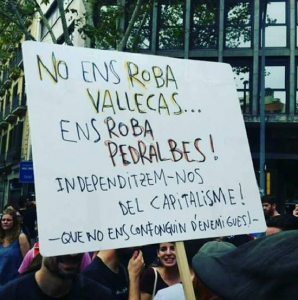 NO ENS ROBA
VALLECAS...
ENS ROBA
PEDRALBES!
INDEPENDITZEM-NOS
DEL CAPITALISME!
-QUE NO ENS CONFONGUIN D'ENEMIGUES!-